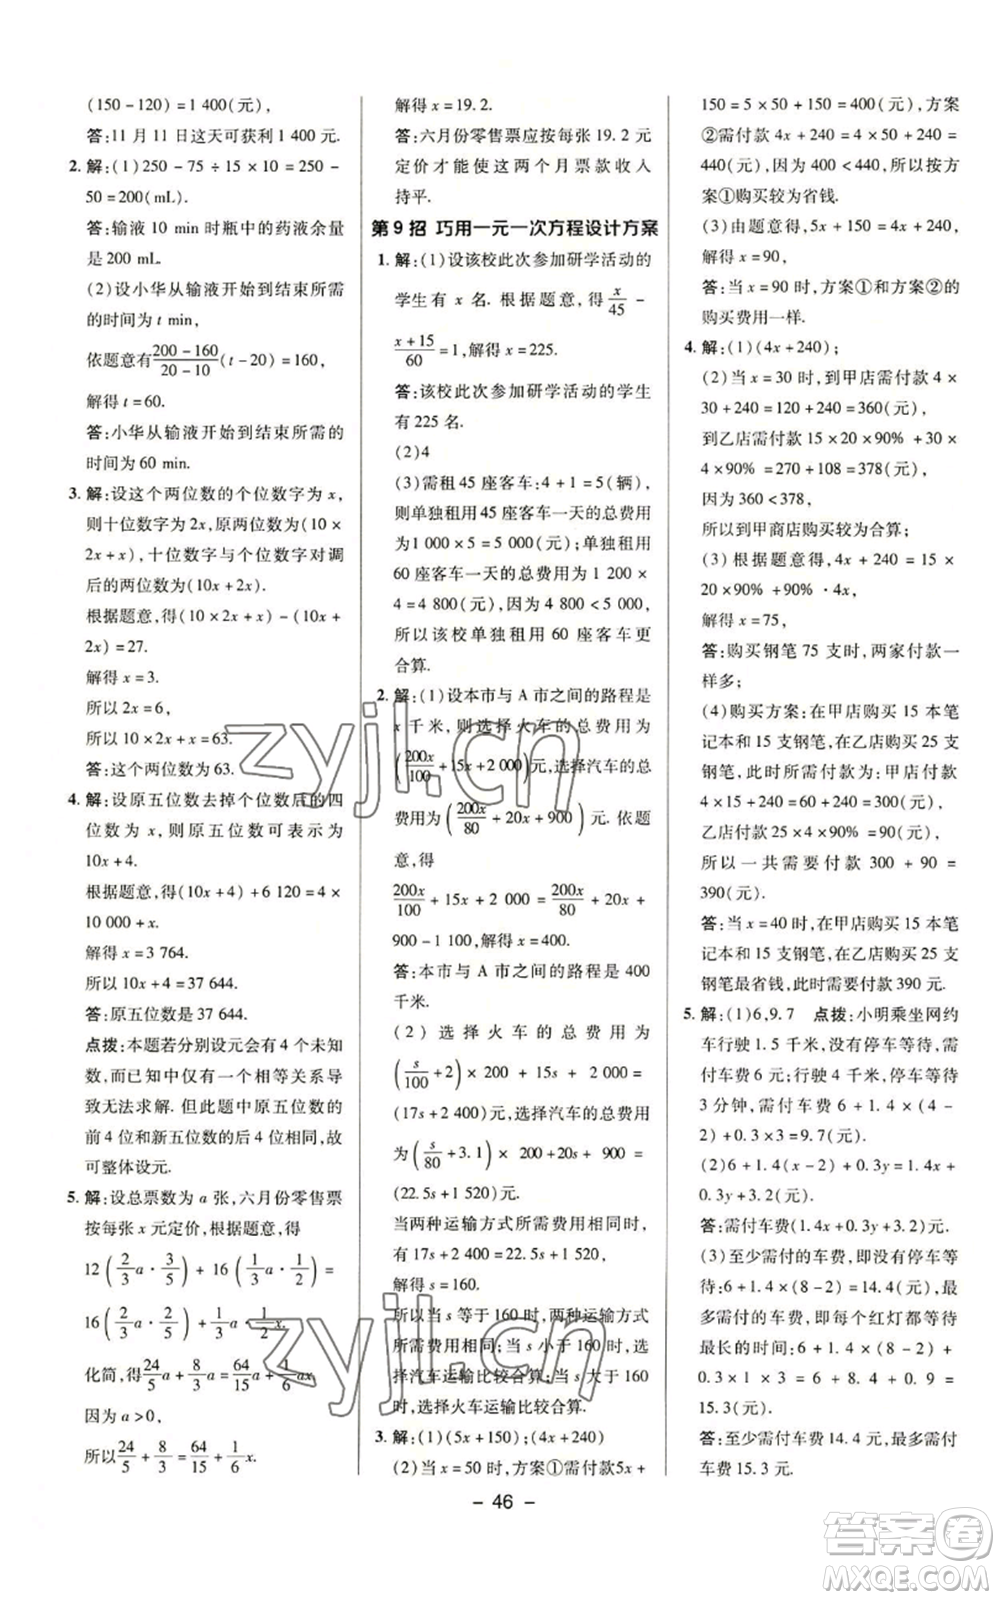 (150-120)=1 400(元),
答:11 月 11 日这天可获利 1 400 元.
2. 解:(1)250-75÷15×10=250-
50=200(mL).
答:输液 10 min 时瓶中的药液余量
是 200 mL.
(2)设小华从输液开始到结束所需
的时间为 t min,
依题意有(200-160)/(20-10)(t-20)=160,
解得 t=60.
答:小华从输液开始到结束所需的
时间为 60 min.
3. 解:设这个两位数的个位数字为 x,
则十位数字为 2x,原两位数为(10×
2x+x),十位数字与个位数字对调
后的两位数为(10x+2x).
根据题意,得(10×2x+x)-(10x+
2x)=27.
解得 x=3.
所以 2x=6,
所以 10×2x+x=63.
答:这个两位数为 63.
4. 解:设原五位数去掉个位数后的四
位数为 x,则原五位数可表示为
10x+4.
根据题意,得(10x+4)+6 120=4×
10 000+x.
解得 x=3 764.
所以 10x+4=37 644.
答:原五位数是 37 644.
点拨:本题若分别设元会有 4 个未知
数,而已知中仅有一个相等关系导
致无法求解.但此题中原五位数的
前 4 位和新五位数的后 4 位相同,故
可整体设元.
5. 解:设总票数为 a 张,六月份零售票
按每张 x 元定价,根据题意,得
12(2/3 a·3/5)+16(2/3 a·1/2)=
16(2/3 a·2/5)+1/2x·1/3 a.
化简,得24/5 a+8/3 a=64/15 a+1/6 ax.
因为 a>0,
所以24/5+8/3=64/15+1/6 x.
解得 x=19.2.
答:六月份零售票应按每张 19.2 元
定价才能使这两个月票款收入
持平.
第 9 招 巧用一元一次方程设计方案
1. 解:(1)设该校此次参加研学活动的
学生有 x 名.根据题意,得x/45-
(x+15)/60=1,解得 x=225.
答:该校此次参加研学活动的学生
有 225 名.
(2)4
(3)需租 45 座客车:4+1=5(辆),
则单独租用 45 座客车一天的总费用
为 1 000×5=5 000(元);单独租用
60 座客车一天的总费用为 1 200×
4=4 800(元),因为 4 800<5 000,
所以该校单独租用 60 座客车更
合算.
2. 解:(1)设本市与 A 市之间的路程是
x 千米,则选择火车的总费用为
(200x/100+15x+2 000)元,选择汽车的总
费用为(200x/80+20x+900)元.依题
意,得
200x/100+15x+2 000=200x/80+20x+
900-1 100,解得 x=400.
答:本市与 A 市之间的路程是 400
千米.
(2)选择火车的总费用为
(s/100+2)×200+15s+2 000=
(17s+2 400)元,选择汽车的总费用
为(s/80+3.1)×200+20s+900=
(22.5s+1 520)元.
当两种运输方式所需费用相同时,
有 17s+2 400=22.5s+1 520,
解得 s=160.
所以当 s 等于 160 时,两种运输方式
所需费用相同;当 s 小于 160 时,选择
汽车运输比较合算;当 s 大于 160
时,选择火车运输比较合算.
3. 解:(1)(5x+150);(4x+240)
(2)当 x=50 时,方案①需付款5x+
150=5×50+150=400(元),方案
②需付款 4x+240=4×50+240=
440(元),因为 400<440,所以按方
案①购买较为省钱.
(3)由题意,得 5x+150=4x+240,
解得 x=90,
答:当 x=90 时,方案①和方案②的
购买费用一样.
4. 解:(1)(4x+240);
(2)当 x=30 时,到甲店需付款 4×
30+240=120+240=360(元),
到乙店需付款 15×20×90%+30×
4×90%=270+108=378(元),
因为 360<378,
所以到甲商店购买较为合算;
(3)根据题意得,4x+240=15×
20×90%+90%·4x,
解得 x=75,
答:购买钢笔 75 支时,两家付款一
样多;
(4)购买方案:在甲店购买 15 本笔
记本和 15 支钢笔,在乙店购买 25 支
钢笔,此时需要付款为:甲店付款
4×15+240=60+240=300(元),
乙店付款 25×4×90%=90(元),
所以一共需要付款 300+90=
390(元).
答:当 x=40 时,在甲店购买 15 本笔
记本和 15 支钢笔,在乙店购买 25 支
钢笔最省钱,此时需要付款 390 元.
5. 解:(1)6,9.7 点拨:小明乘坐网约
车行驶 1.5 千米,没有停车等待,需
付车费 6 元;行驶 4 千米,停车等待
3 分钟,需付车费 6+1.4×(4-
2)+0.3×3=9.7(元).
(2)6+1.4(x-2)+0.3y=(1.4x+
0.3y+3.2)元.
答:需付车费(1.4x+0.3y+3.2)元.
(3)至少需付的车费,即没有停车等
待:6+1.4×(8-2)=14.4(元),最
多需付的车费,即每个红灯都等待
最长的时间:6+1.4×(8-2)+
0.3×1×3=6+8.4+0.9=
15.3(元).
答:至少需付车费 14.4 元,最多需
付车费 15.3 元.
- 46 -
zyjl.cn
zyjl.cn
答案卷
MXQE.COM